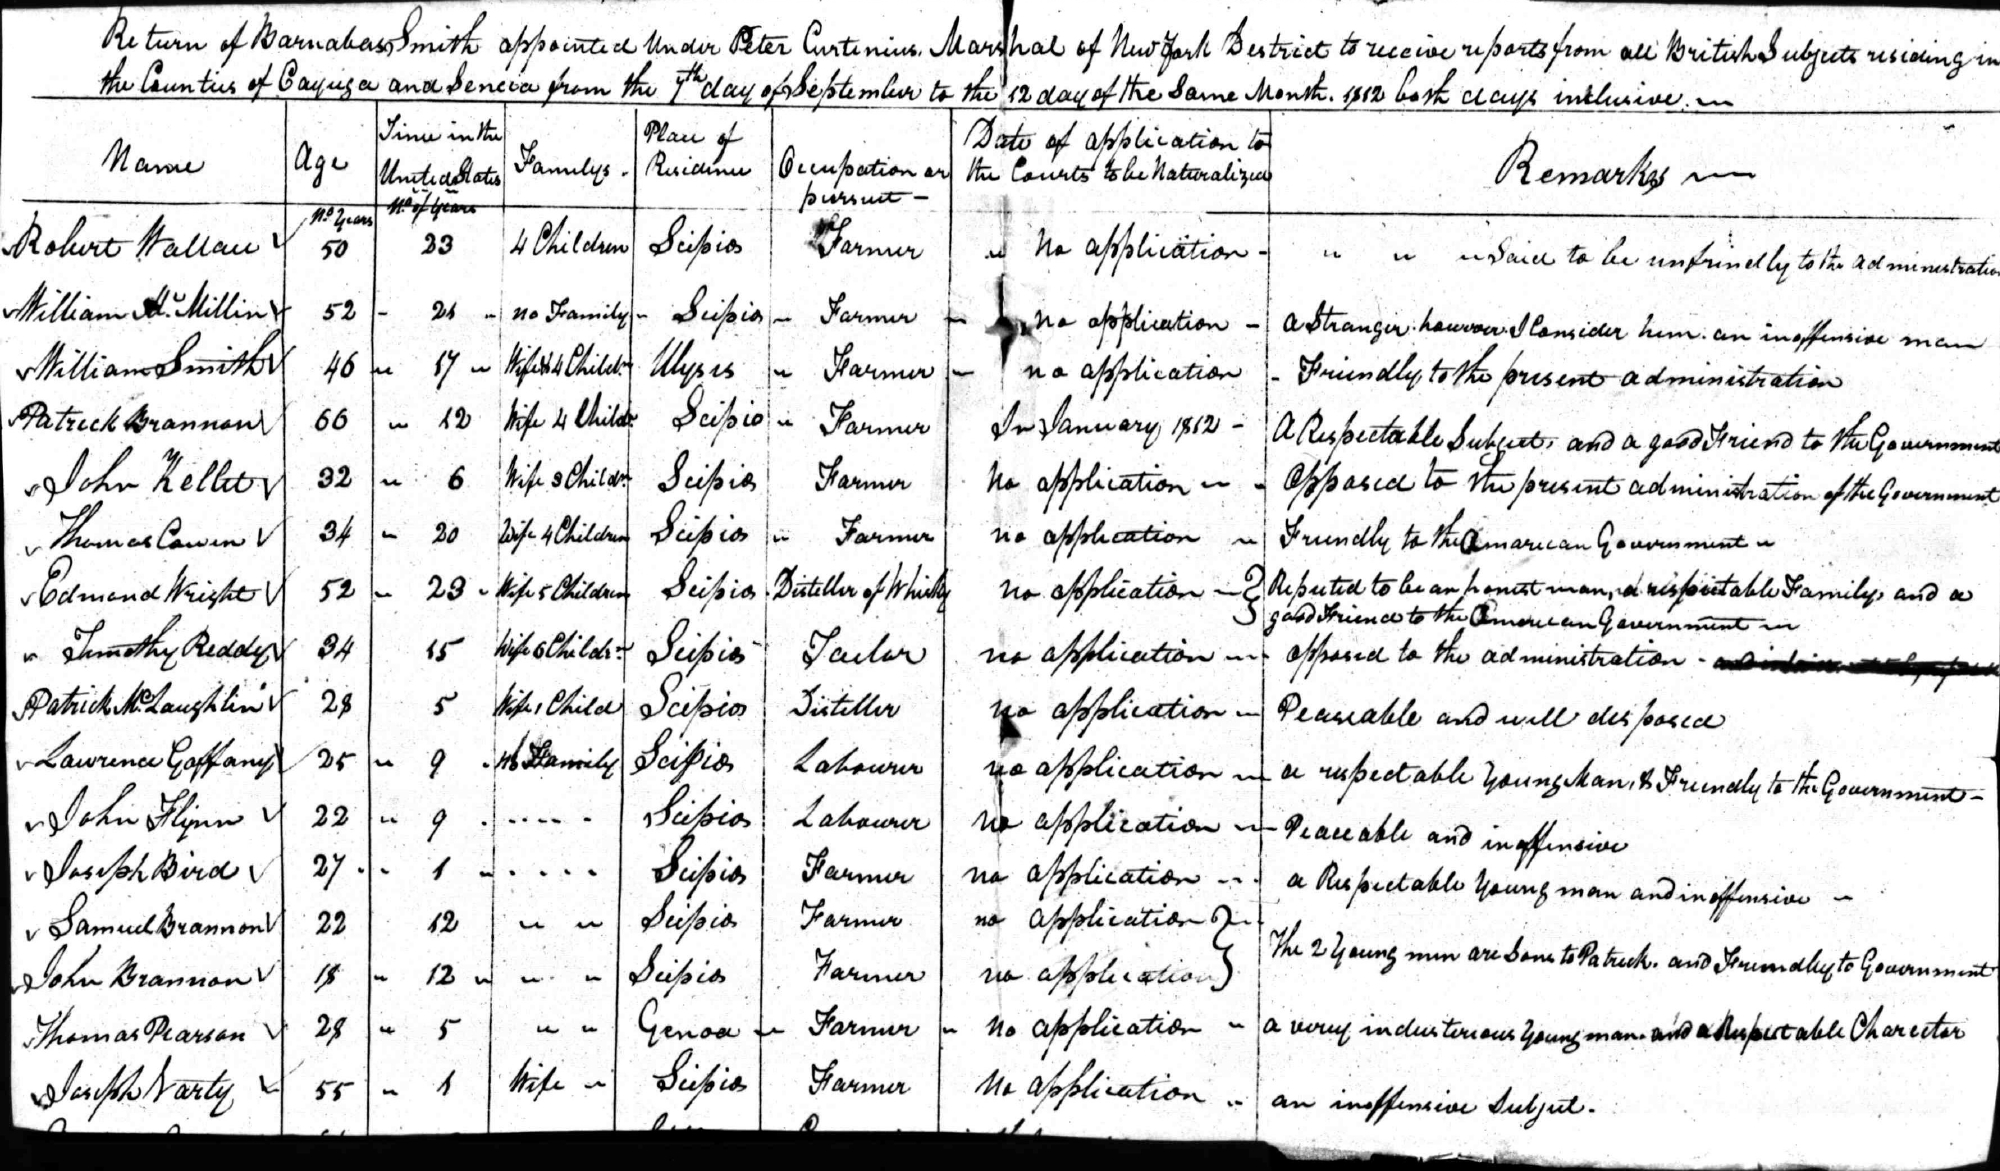 Return of Barnabas Smith appointed Under Peter Curtenius. Marshal of New York Destrict to receive reports from all British Subjects residing in
the Counties of Cayuga and Seneca from the 7th day of September to the 12 day of the Same Month. 1812 both days inclusive.
Name Age Time in the United States No. of Years Familys. Place of Residence Occupation or pursuit Date of application to the Courts to be Naturalized Remarks
No Years
Robert Wallace 50 23 4 Children Scipio Farmer " No application - " " " Said to be unfriendly to the administration
William Mc Millin 52 - 21 " no Family - Scipio - Farmer - no application - a Stranger however I Consider him an inoffensive man
William Smith 46 " 17 " Wife & 4 Childn Ulyses " Farmer - no application - Friendly to the present administration
Patrick Brannon 60 " 12 Wife 4 Childn Scipio " Farmer In January 1812 - A Respectable Subject, and a good Friend to the Government
John Kellet 32 " 6 Wife 3 Childn Scipio Farmer No application " - opposed to the present administration of the Government
Thomas Cowen 34 " 20 Wife 4 Children Scipio " Farmer no application " Friendly to the Amarican Government "
Edmond Wright 52 " 23 " Wife 5 Children Scipio Disteller of Whisky no application - Reputed to be an honest man, a respectable Family and a
good Friend to the American Government
" Timothy Reddy 34 15 Wife 6 Childn Scipio Tailor no application - opposed to the administration -
Patrick McLaughlin 28 5 Wife 1 Child Scipio Disteller no application - Peaseable and well desposed
Lawrence Gaffany 25 " 9 no Family Scipio Labourer no application - a respectable Young Man, & Friendly to the Government -
John Flynn 22 " 9 - - - - - Scipio Labourer no application - Peaceable and inoffensive
Joseph Bird 27 - - 1 - - - - - Scipio Farmer no application - - a Respectable Young man and inoffensive -
Samuel Brannon 22 12 " " Scipio Farmer no application
The 2 Young men are Sons to Patrick. and Friendly to Government
John Brannon 18 " 12 " " " Scipio Farmer no application
Thomas Pearson 28 " 5 " " Genoa " Farmer " No application " a verey industerious Young man and a Respectable Charector
Joseph Varty 55 " 1 Wife " Scipio Farmer No application " an inoffensive Subject.